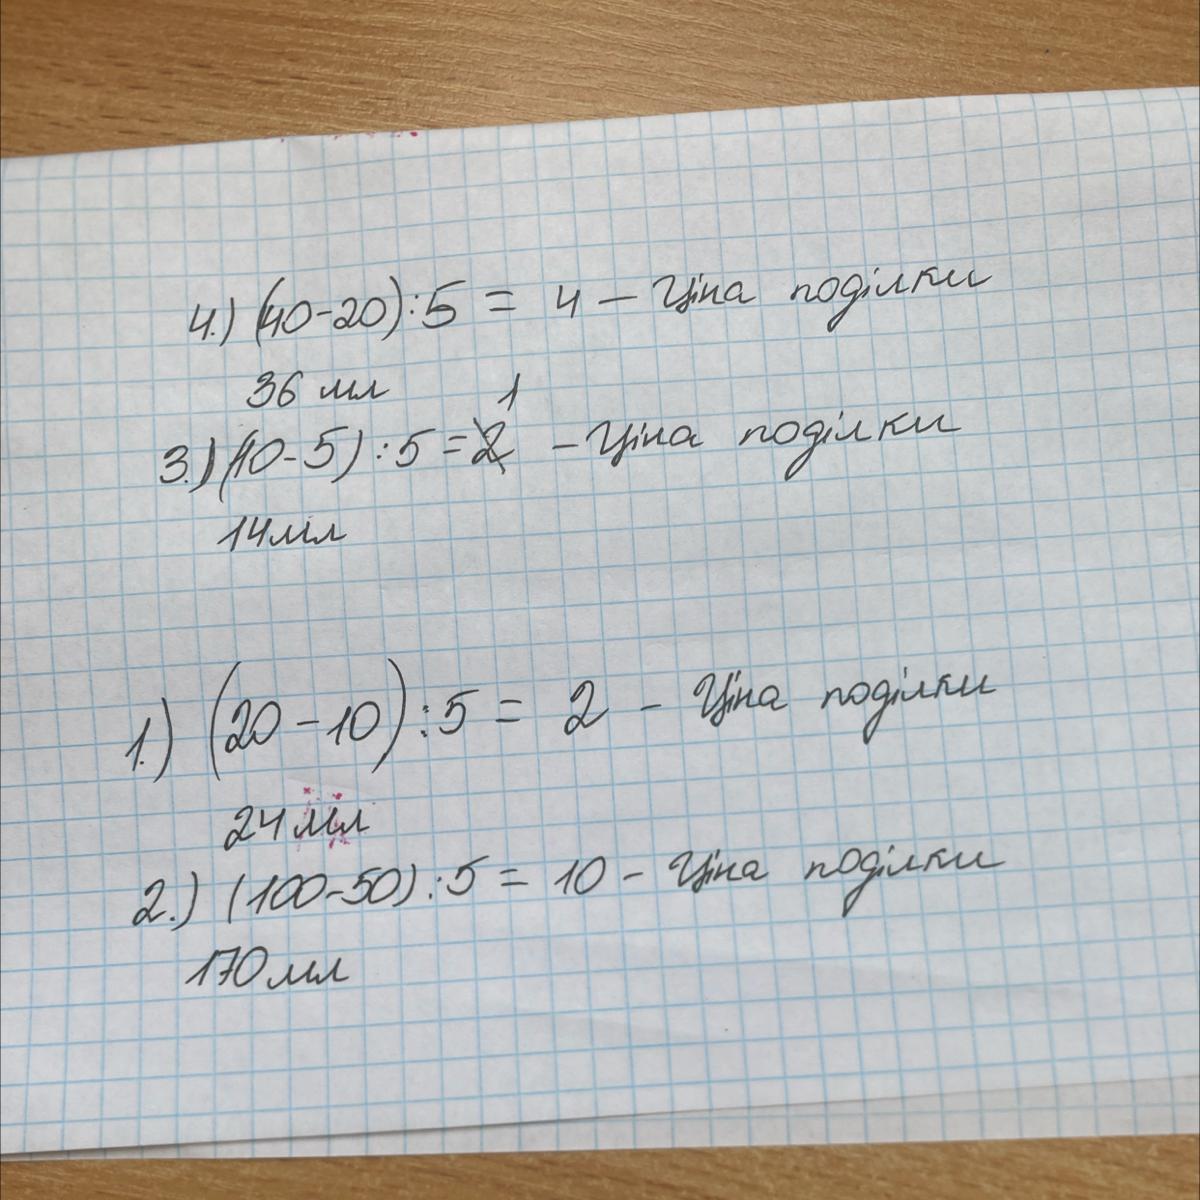 4.) (40-20):5 = 4 – Ціна поділки
36 мл
3.) (10-5):5=2 1 – Ціна поділки
14мл
1.) (20-10):5 = 2 - Ціна поділки
24мл
2.) (100-50):5 = 10 - Ціна поділки
170мл